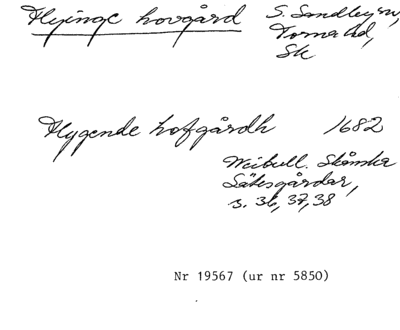 Flyinge hovgård S. Sandby sn,
Torna hd,
Sk
Flygende hofgårdh 1682
Weibull. Skånska
Sätesgårdar,
s. 36, 37, 38
Nr 19567 (ur nr 5850)